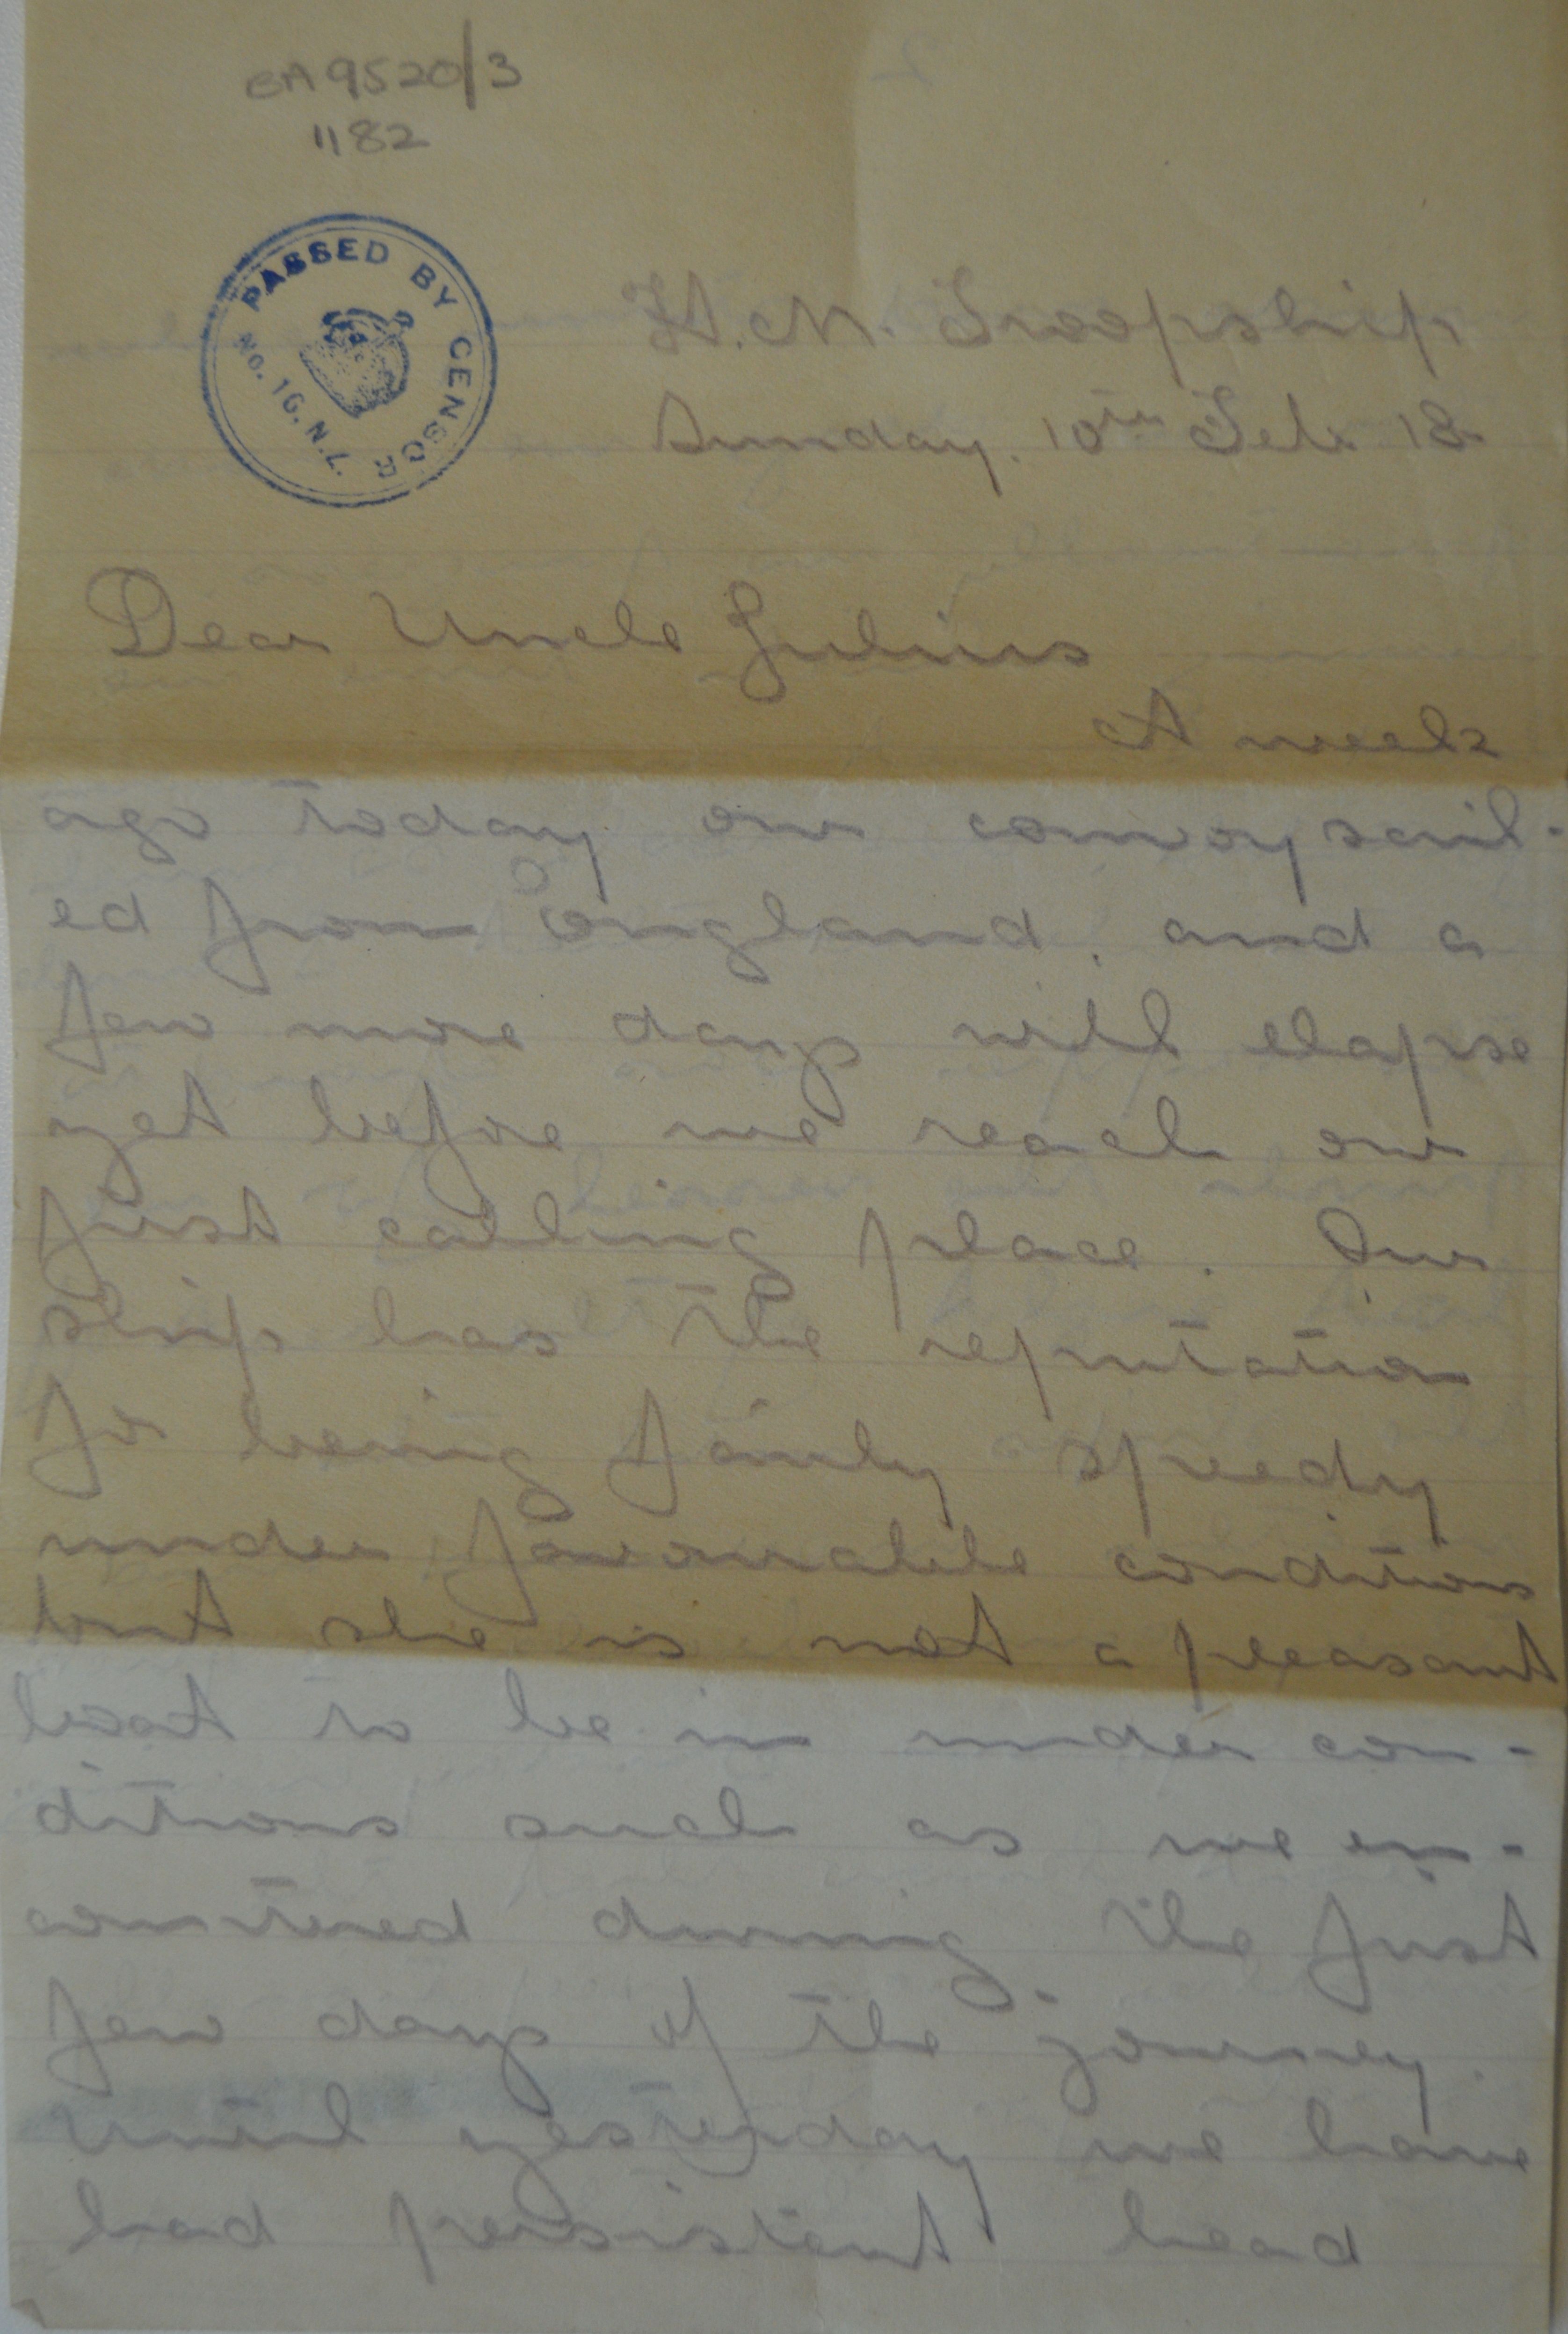 BA9520/3
1182
PASSED BY CENSOR
No. 16. N.Z.
H.M. Troopship
Sunday. 10th Feb 18.
Dear Uncle Julius
A week
ago today our convoy sail-
ed from England, and a
few more days will elapse
yet before we reach our
first calling place. Our
ship has the reputation
for being fairly speedy
under favourable conditions
but she is not a pleasant
boat to be in under con-
ditions such as we en-
countered during the first
few days of the journey.
Until yesterday we have
had persistent head